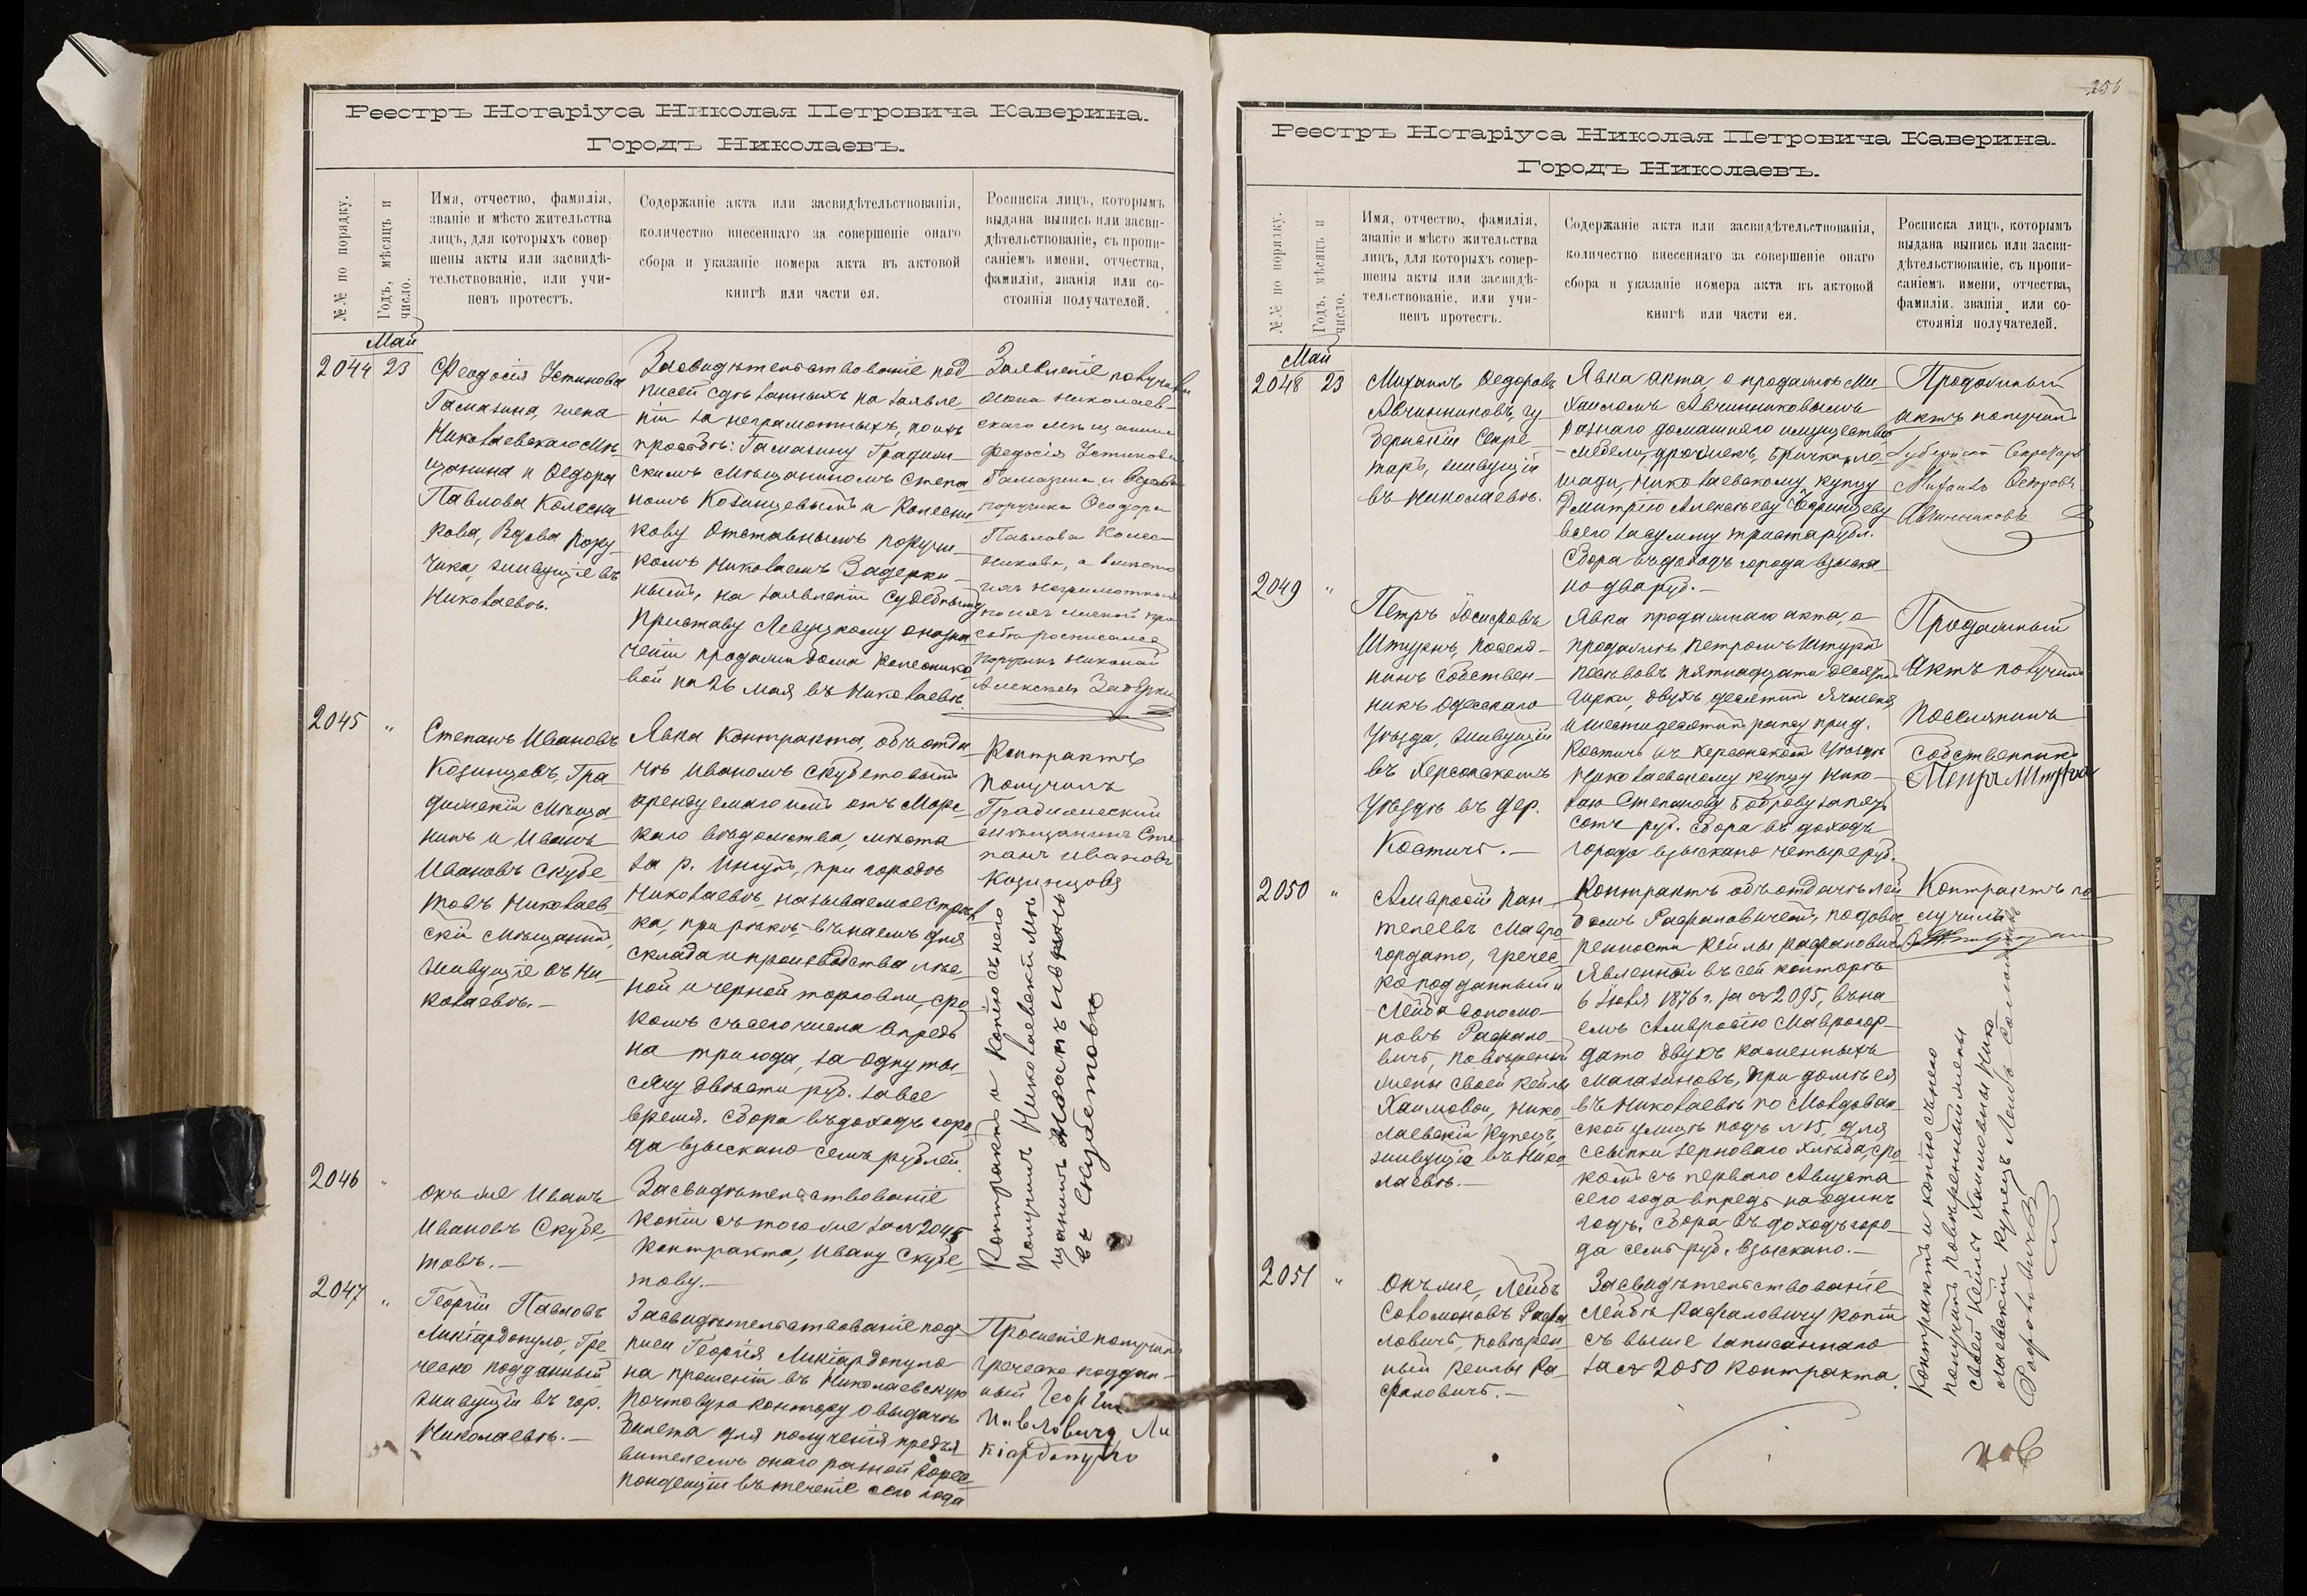 Реестръ Нотаріуса Николая Петровича Каверина.
Городъ Николаевъ.
№№ по порядку.
Годъ, мѣсяцъ и
число.
Имя, отчество, фамилія,
званіе и мѣсто жительства
лицъ, для которыхъ совер-
шены акты или засвидѣ-
тельствованіе, или учи-
ненъ протестъ.
Содержаніе акта или засвидѣтельствованія,
количество внесеннаго за совершеніе онаго
сбора и указаніе номера акта въ актовой
книгѣ или части ея.
Росписка лицъ, которымъ
выдана выпись или засви-
дѣтельствованіе, съ пропи-
саніемъ имени, отчества,
фамиліи, званія или со-
стоянія получателей.
Май
2044 23
Феодосія Устинова
Гамазина, жена
Николаевскаго Мѣ-
щанина и Федора
Павлова Колесни
кова, Вдова Пору-
чика, живущіе въ
Николаевѣ.
Засвидѣтельствованіе под
писей сдѣланныхъ на заявле-
ніи за неграмотныхъ, по ихъ
просьбѣ: Гамазину Градиж-
скимъ Мѣщаниномъ Степа
номъ Козинцевымъ и Колесни
кову Отставнымъ поручи-
комъ Николаемъ Задерки-
нымъ, на заявленіи Судебному
Приставу Левицкому о назна
ченіи продажи дома Колеснико
вой на 26 мая въ Николаевѣ.
Заявленіе получили
жена Николаев-
скаго мѣщанина
Федосія Устинова
Гамазина и Вдова
поручика Феодора
Павлова Колес-
никова, а вмѣсто
ихъ неграмотных
по ихъ личной про
сьбѣ росписался
Поручикъ Николай
Алексѣевъ Задеркинъ
2045 "
Степанъ Ивановъ
Козинцовъ, Гра
дижскій Мѣща
нинъ и Иванъ
Ивановъ Скубе
товъ Николаев
скій Мѣщанинъ,
живущіе въ Ни
колаевѣ.—
Явка Контракта, объ отда
чѣ Иваномъ Скубетовымъ
арендуемаго имъ отъ Морс
каго вѣдомства, мѣста
за р. Ингулъ, при городѣ
Николаевѣ, называемое Стрѣл
ка, при рѣкѣ, въ наемъ для
склада и производства лѣс
ной и черной торговли, сро
комъ съ сего числа впредь
на три года, за одну ты-
сячу двѣсти руб. за все
время. Сбора въ доходъ горо
да взыскано семь рублей.
Контрактъ
Получилъ
Градижскій
мѣщанинъ Сте
панъ Ивановъ
Козинцовъ
Контрактъ и копію съ него
Получилъ Николаевскій Мѣ
щанинъ Иванъ Ивановъ
Скубетовъ
2046 "
Онъ же Иванъ
Ивановъ Скубе-
товъ.—
Засвидѣтельствованіе
копіи съ того же за № 2045
Контракта, Ивану Скубе
тову.—
2047 "
Георгій Павловъ
Ликіардопуло, Гре
ческо подданный
живущій въ гор.
Николаевѣ.—
Засвидѣтельствованіе под-
писи Георгія Ликіардопуло
на прошеніи въ Николаевскую
Почтовую контору о выдачѣ
Билета для полученія предъя
вителемъ онаго разной Корес-
понденціи въ теченіе сего года
Прошеніе получилъ
греческо поддан-
ный Георгій
Павловичъ Ли
кіардопуло
256
Реестръ Нотаріуса Николая Петровича Каверина.
Городъ Николаевъ.
№№ по порядку.
Годъ, мѣсяцъ и
число.
Имя, отчество, фамилія,
званіе и мѣсто жительства
лицъ, для которыхъ совер-
шены акты или засвидѣ-
тельствованіе, или учи-
ненъ протестъ.
Содержаніе акта или засвидѣтельствованія,
количество внесеннаго за совершеніе онаго
сбора и указаніе номера акта въ актовой
книгѣ или части ея.
Росписка лицъ, которымъ
выдана выпись или засви-
дѣтельствованіе, съ пропи-
саніемъ имени, отчества,
фамиліи, званія или со-
стоянія получателей.
Май
2048 23
Михаилъ Федоровъ
Авчинниковъ, гу
бернскій Секре-
тарь, живущій
въ Николаевѣ.
Явка акта о продажѣ Ми-
хаиломъ Авчинниковымъ
разнаго домашняго имущества
мебели, дрожекъ, брички, ло-
шади, Николаевскому купцу
Дмитрію Алексѣеву
всего за сумму триста рубл.
Сбора въ доходъ города взыска
но два руб.—
Продажный
актъ получилъ
Губернскій Секретарь
Михаилъ Федоровъ
Авчинниковъ
2049 "
Петръ Іосифовъ
Штурнъ, поселя-
нинъ собствен-
никъ Одесскаго
Уѣзда, живущій
въ Херсонскомъ
Уѣздѣ въ дер.
Костичѣ.—
Явка продажнаго акта, о
продажѣ Петромъ Штурн
посѣвовъ пятнадцати десятин
Гирки, двухъ десятин Ячменя
и шести десятинъ рапсу при д.
Костичѣ въ Херсонскомъ Уѣздѣ
Николаевскому купцу Нико-
лаю Степанову Боброву за пять
сотъ руб. Сбора въ доходъ
города взыскано четыре руб.
Продажный
Актъ получилъ
Поселянинъ
Собственникъ
2050 "
Амвросій Пан-
телеевъ Мавро
гордато, гречес-
ко подданный и
Лейба Соломо-
новъ Рафало-
вичъ, повѣренный
жены своей Кейлы
Хаимовой, Нико
лаевскій Купецъ,
живущіе въ Нико
лаевѣ.—
Контрактъ объ отдачѣ Лей
бомъ Рафаловичемъ, по довѣ
ренности Кейлы Рафаловичъ
Явленной въ сей конторѣ
6 Іюля 1876 г. за № 2095, въ на
емъ Амвросію Маврогор-
дато двухъ каменныхъ
магазиновъ, при домѣ ея
въ Николаевѣ по Молдован-
ской улицѣ подъ № 15, для
ссыпки зерноваго хлѣба, сро
комъ съ перваго Августа
сего года впредь на одинъ
годъ. Сбора въ доходъ горо-
да семь руб. взыскано.—
Контрактъ по-
лучилъ
Контрактъ и копію съ него
получилъ повѣренный жены
своей Кейлы Хаимовны Нико
лаевскій купецъ Лейба Соломоновъ
Рафаловичъ
2051 "
Онъ же, Лейба
Соломоновъ Рафа
ловичъ, повѣрен
ный Кейлы Ра-
фаловичъ.—
Засвидѣтельствованіе
Лейбѣ Рафаловичу копіи
съ выше записаннаго
за № 2050 контракта.